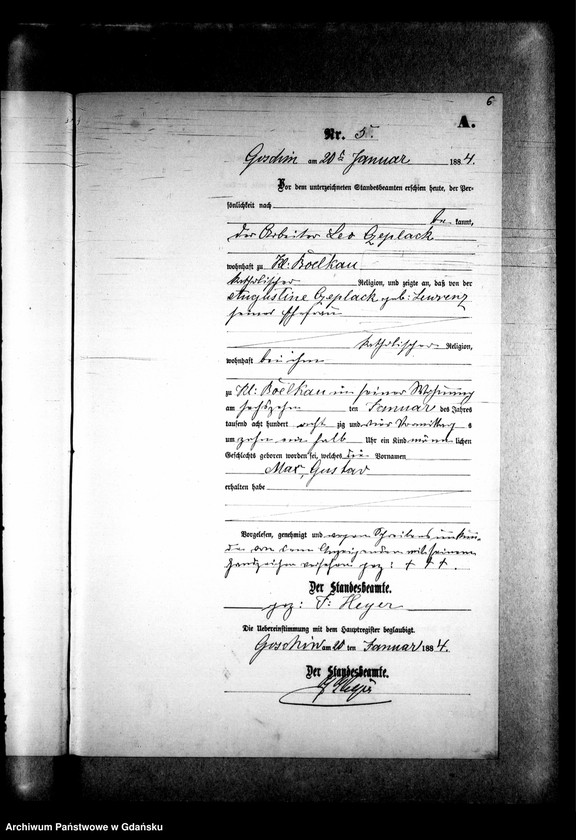 6
A.
Nr. 5.
Goschin am 20 ten Januar 1884.
Vor dem unterzeichneten Standesbeamten erschien heute, der Per-
sönlichkeit nach
be kannt,
der Arbeiter Leo Czeplack
wohnhaft zu Kl: Boelkau
katholischer Religion, und zeigte an, daß von der
Augustine Czeplack geb: Lewrenz
seiner Ehefrau
katholischer Religion,
wohnhaft bei ihm
zu Kl: Boelkau in seiner Wohnung
am sechszehn ten Januar des Jahres
tausend acht hundert acht zig und vier Vormittag s
um zehn ein halb Uhr ein Kind männ lichen
Geschlechts geboren worden sei, welches die Vornamen
Max, Gustav
erhalten habe
Vorgelesen, genehmigt und wegen Schreibensunkun-
de von dem Anzeigenden mit seinem
Handzeichen versehen gez: + + +.
Der Standesbeamte.
gez: F: Heyer
Die Uebereinstimmung mit dem Hauptregister beglaubigt.
Goschin am 20 ten Januar 1884.
Der Standesbeamte.
F Heyer
Archiwum Państwowe w Gdańsku